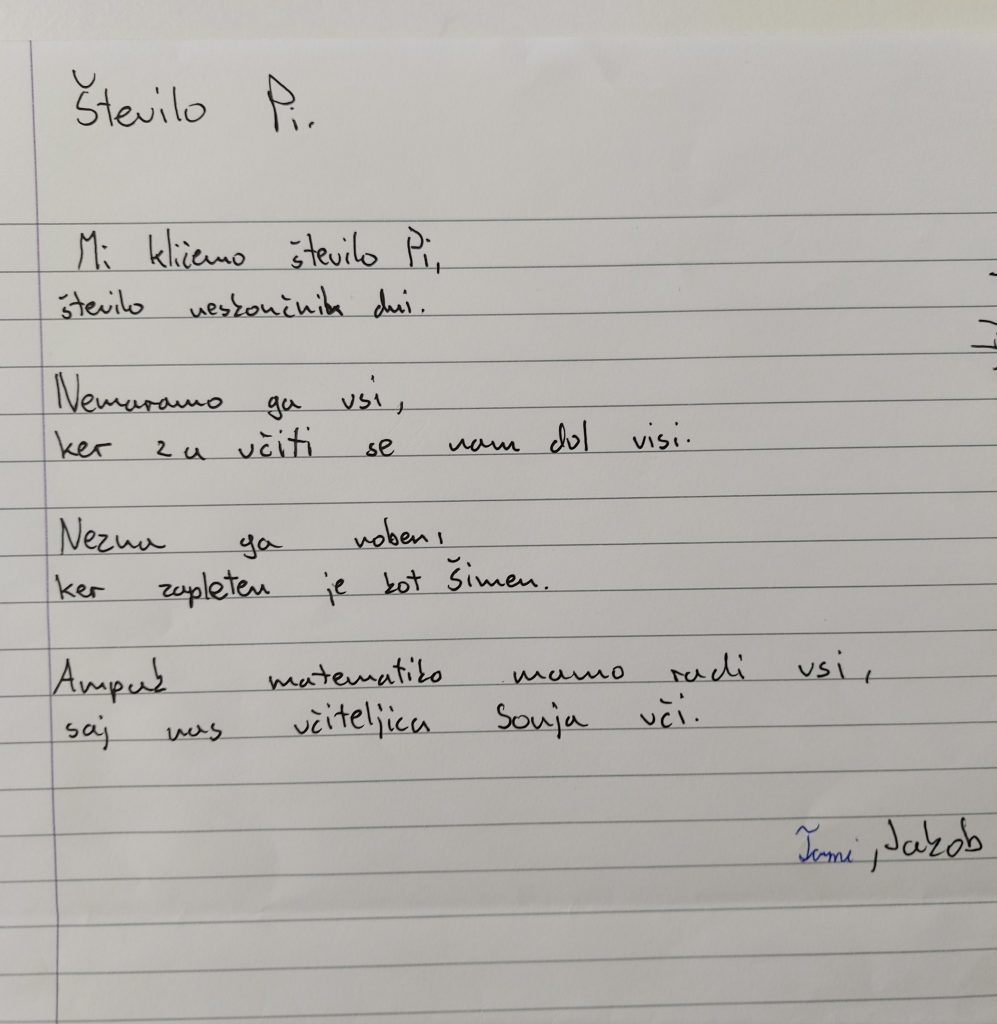 Število Pi.
Mi kličemo število Pi,
število neskončnih dni.
Nemaramo ga vsi,
ker za učiti se nam dol visi.
Nezna ga noben,
ker zapleten je kot Šimen.
Ampak matematiko mamo radi vsi,
saj nas učiteljica Sonja uči.
Tami, Jakob